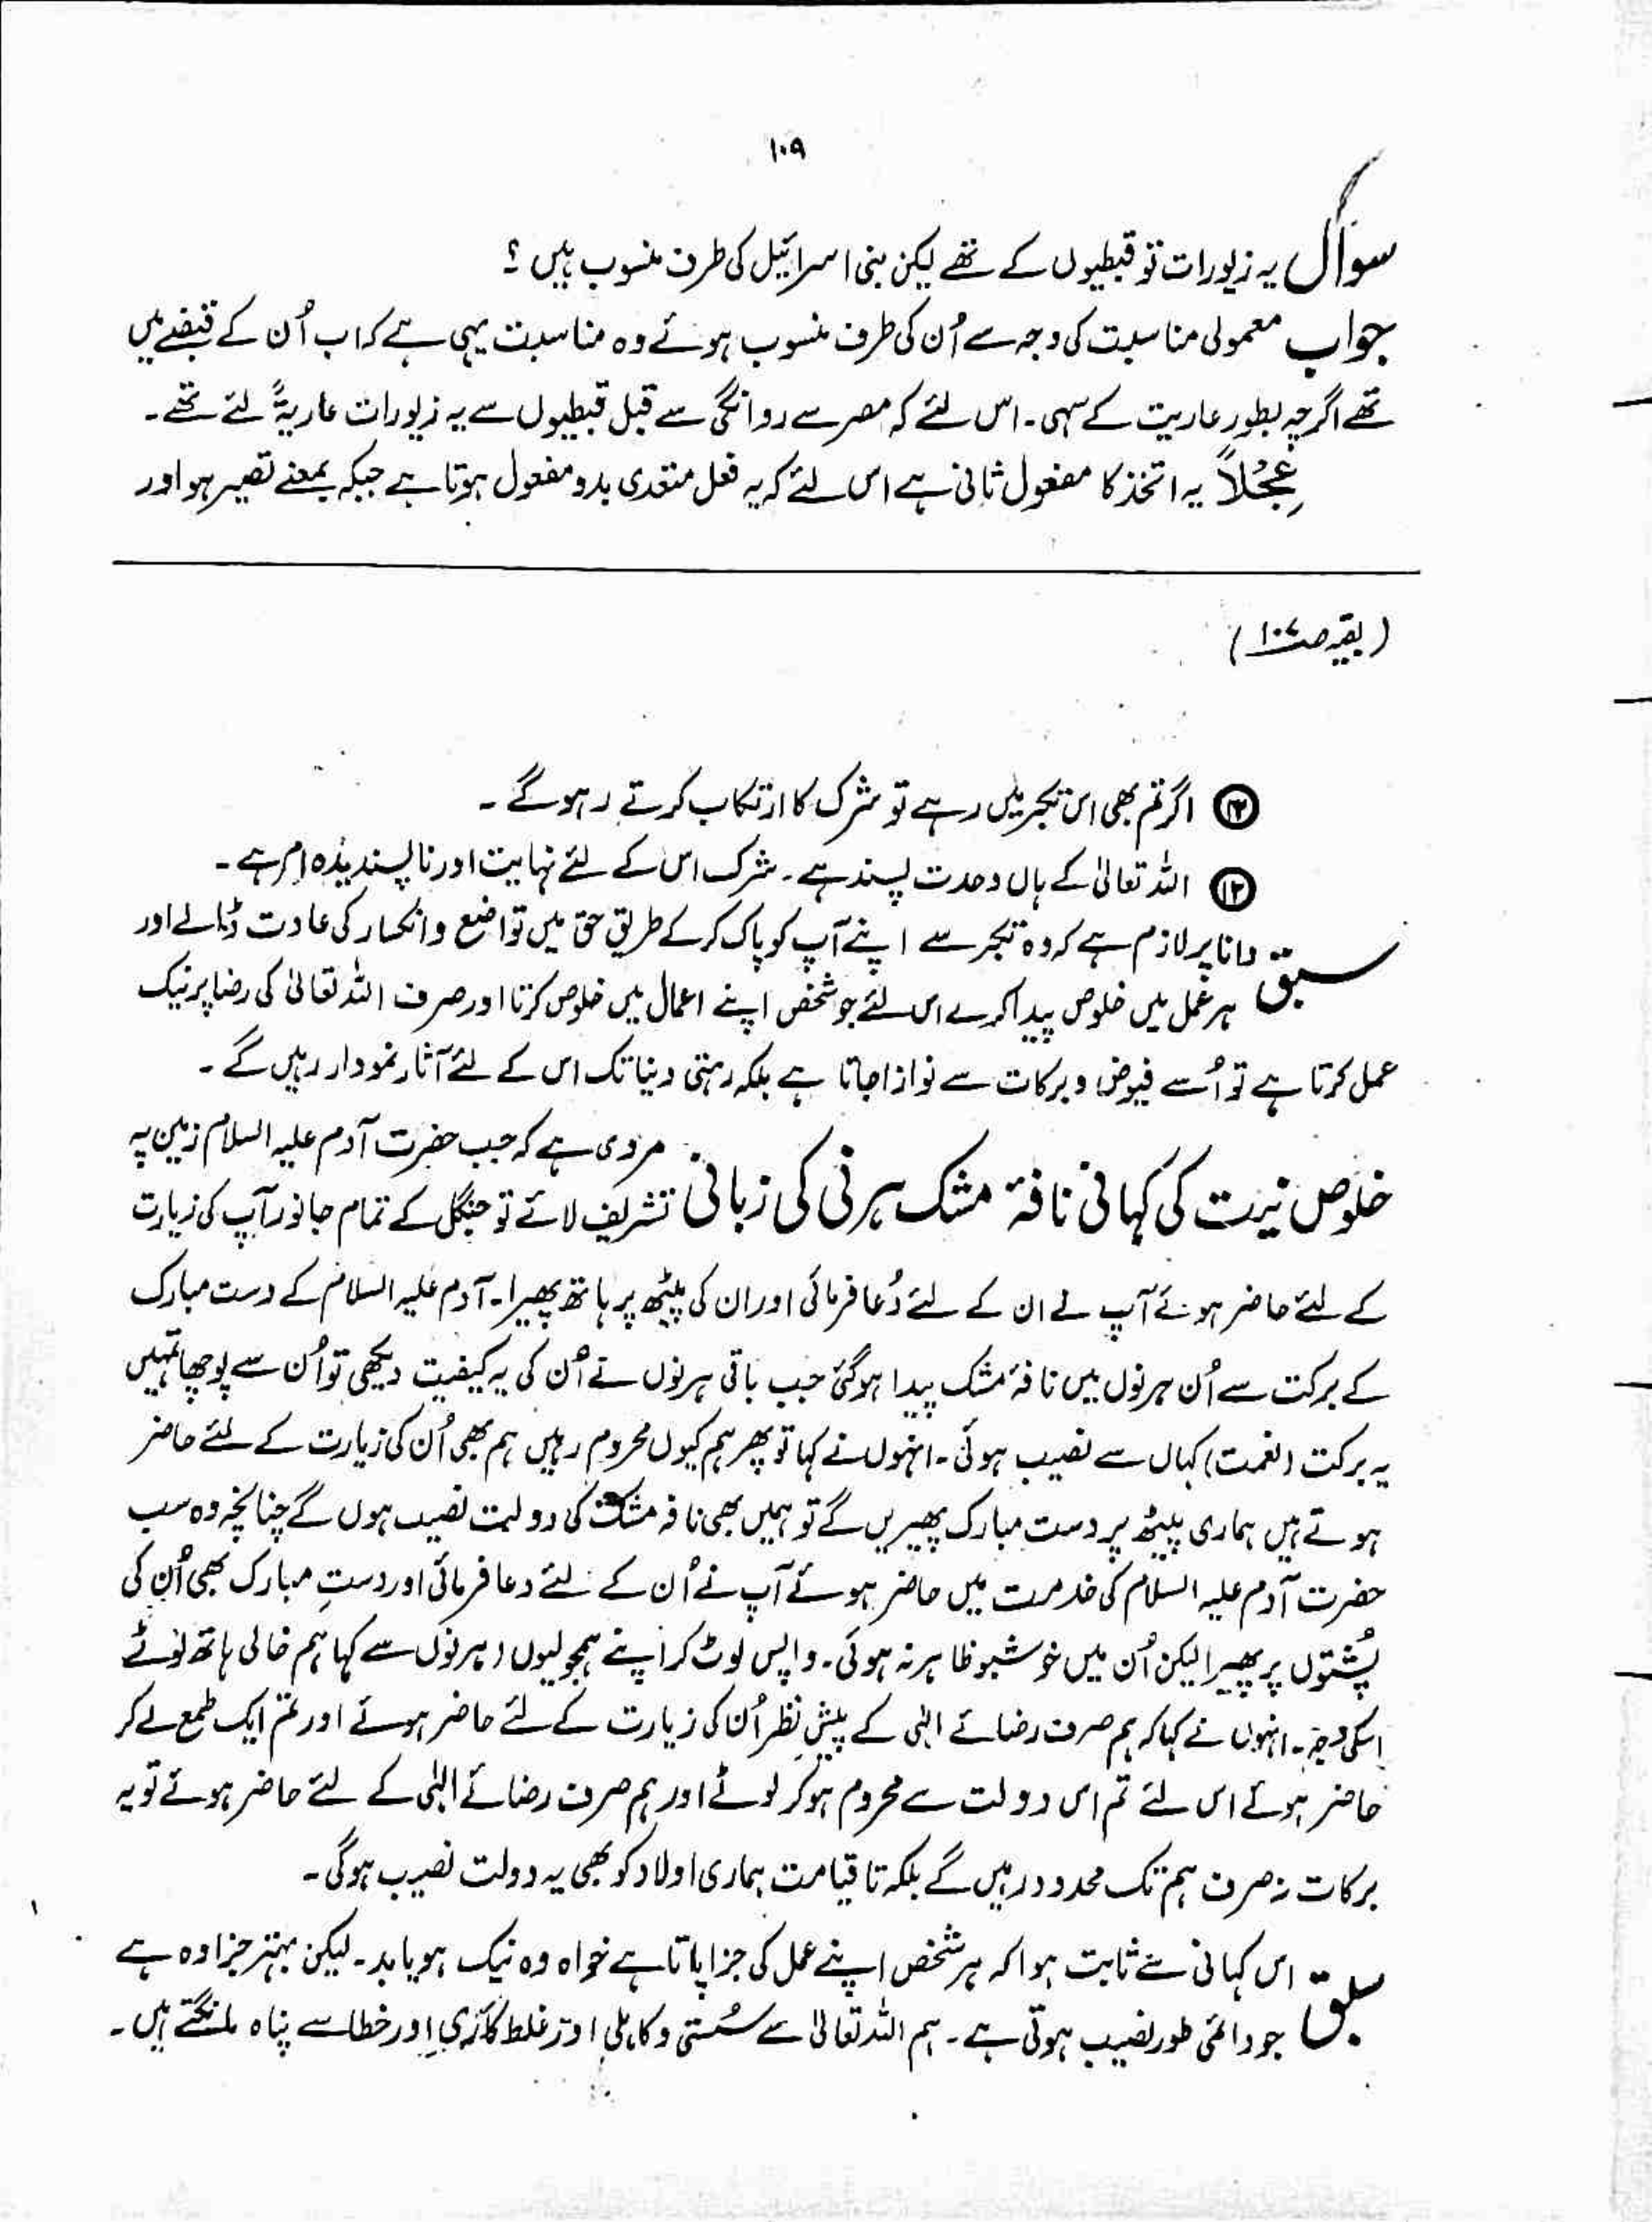 ۱۰۹
سوال یہ زیورات تو قبطیوں کے تھے لیکن بنی اسرائیل کی طرف منسوب ہیں ؟
جواب معمولی مناسبت کی وجہ سے اُن کی طرف منسوب ہوئے وہ مناسبت یہی ہے کہ اب اُن کے قبضے میں
تھے اگرچہ بطور عاریت کے سہی۔ اس لئے کہ مصر سے روانگی سے قبل قبطیوں سے یہ زیورات عاریۃً لئے تھے۔
عِجْلاً یہ اتخذ کا مفعول ثانی ہے اس لئے کہ یہ فعل متعدی بدو مفعول ہوتا ہے جبکہ بمعنے تصیر ہو اور
(بقیہ صـ ۱۰۷)
اگر تم بھی اس تکبر میں رہے تو شرک کا ارتکاب کرتے رہو گے ۔
⑬ اللہ تعالیٰ کے ہاں وحدت پسند ہے۔ شرک اس کے لئے نہایت اور ناپسندیدہ امر ہے۔
سبق دانا پر لازم ہے کہ وہ تکبر سے اپنے آپ کو پاک کر کے طریق حق میں تواضع و انکسار کی عادت ڈالے اور
ہر عمل میں خلوص پیدا کرے اس لئے جو شخص اپنے اعمال میں خلوص کرتا اور صرف اللہ تعالیٰ کی رضا پر نیک
عمل کرتا ہے تو اُسے فیوض و برکات سے نوازا جاتا ہے بلکہ رہتی دنیا تک اس کے لئے آثار نمودار رہیں گے ۔
خلوص نیت کی کہانی نافۂ مشک ہرنی کی زبانی مروی ہے کہ جب حضرت آدم علیہ السلام زمین پہ
تشریف لائے تو جنگل کے تمام جانور آپ کی زیارت
کے لئے حاضر ہوئے آپ نے ان کے لئے دُعا فرمائی اور ان کی پیٹھ پر ہاتھ پھیرا۔ آدم علیہ السلام کے دست مبارک
کے برکت سے اُن ہرنوں میں نافۂ مشک پیدا ہوگئی جب باقی ہرنوں نے اُن کی یہ کیفیت دیکھی تو اُن سے پوچھا تمہیں
یہ برکت (نعمت) کہاں سے نصیب ہوئی۔ انہوں نے کہا تو پھر ہم کیوں محروم رہیں ہم بھی اُن کی زیارت کے لئے حاضر
ہوتے ہیں ہماری پیٹھ پر دست مبارک پھیریں گے تو ہمیں بھی نافہ مشک کی دولت نصیب ہوں گے چنانچہ وہ سب
حضرت آدم علیہ السلام کی خدمت میں حاضر ہوئے آپ نے اُن کے لئے دعا فرمائی اور دستِ مبارک بھی اُن کی
پُشتوں پر پھیرا لیکن اُن میں خوشبو ظاہر نہ ہوئی۔ واپس لوٹ کر اپنے ہمجولیوں (ہرنوں سے کہا ہم خالی ہاتھ لوٹے
اسکی وجہ۔ انہوں نے کہا کہ ہم صرف رضائے الٰہی کے پیشِ نظر اُن کی زیارت کے لئے حاضر ہوئے اور تم ایک طمع لے کر
حاضر ہوئے اس لئے تم اس دولت سے محروم ہو کر لوٹے اور ہم صرف رضائے الٰہی کے لئے حاضر ہوئے تو یہ
برکات نہ صرف ہم تک محدود رہیں گے بلکہ تا قیامت ہماری اولاد کو بھی یہ دولت نصیب ہوگی۔
سبق اس کہانی سے ثابت ہوا کہ ہر شخص اپنے عمل کی جزا پاتا ہے خواہ وہ نیک ہو یا بد۔ لیکن بہتر جزا وہ ہے
جو دائمی طور نصیب ہوتی ہے۔ ہم اللہ تعالیٰ سے سُستی و کاہلی اور غلط کاری اور خطا سے پناہ مانگتے ہیں۔